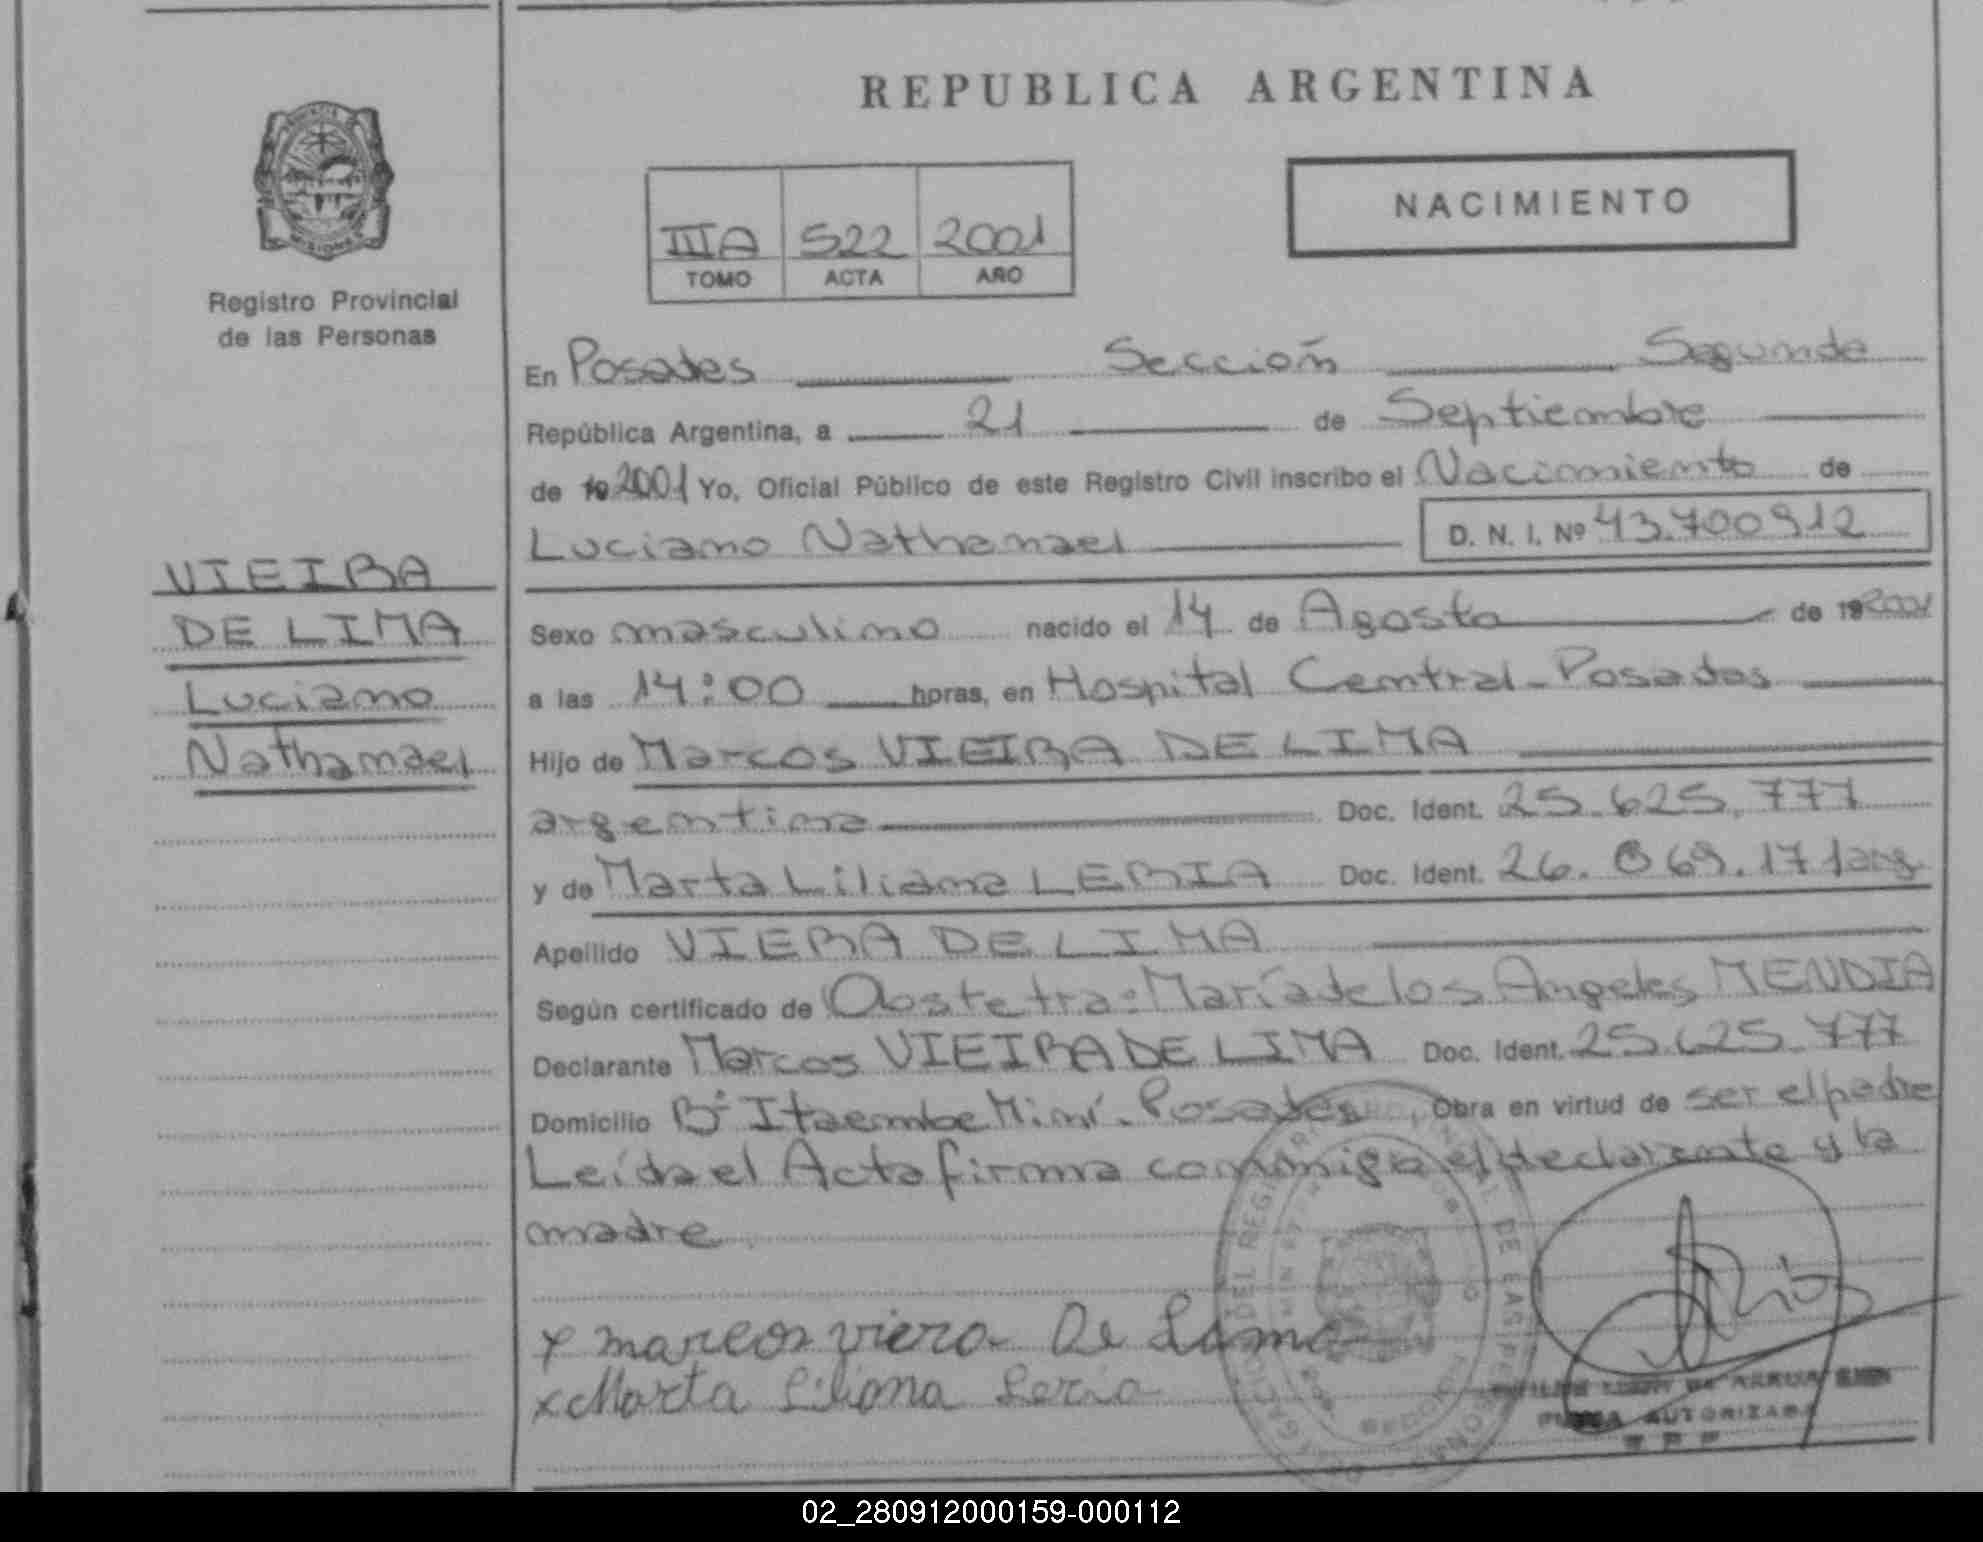 REPUBLICA ARGENTINA
NACIMIENTO
IIIA 522 2001
TOMO ACTA AÑO
Registro Provincial
de las Personas
VIEIRA
DE LIMA
Luciano
Nathanael
En Posadas Sección Segunda
República Argentina, a 21 de Septiembre
de 19 2001 Yo, Oficial Público de este Registro Civil inscribo el Nacimiento de
Luciano Nathanael D. N. I. Nº 43.700912
Sexo masculino nacido el 14 de Agosto de 19 2001
a las 14:00 horas, en Hospital Central - Posadas
Hijo de Marcos VIEIRA DE LIMA
argentino Doc. Ident. 25.625.777
y de Marta Liliana LERIA Doc. Ident. 26.069.171 arg
Apellido VIERA DE LIMA
Según certificado de Obstetra: María de los Angeles MENDIA
Declarante Marcos VIEIRA DE LIMA Doc. Ident. 25.625.777
Domicilio Bº Itaembe Miní - Posadas Obra en virtud de ser el padre
Leída el Acta firma conmigo el declarante y la
madre
x marcos viera De Lima
x Marta Liliana Leria
AUTORIZADA
02_280912000159-000112